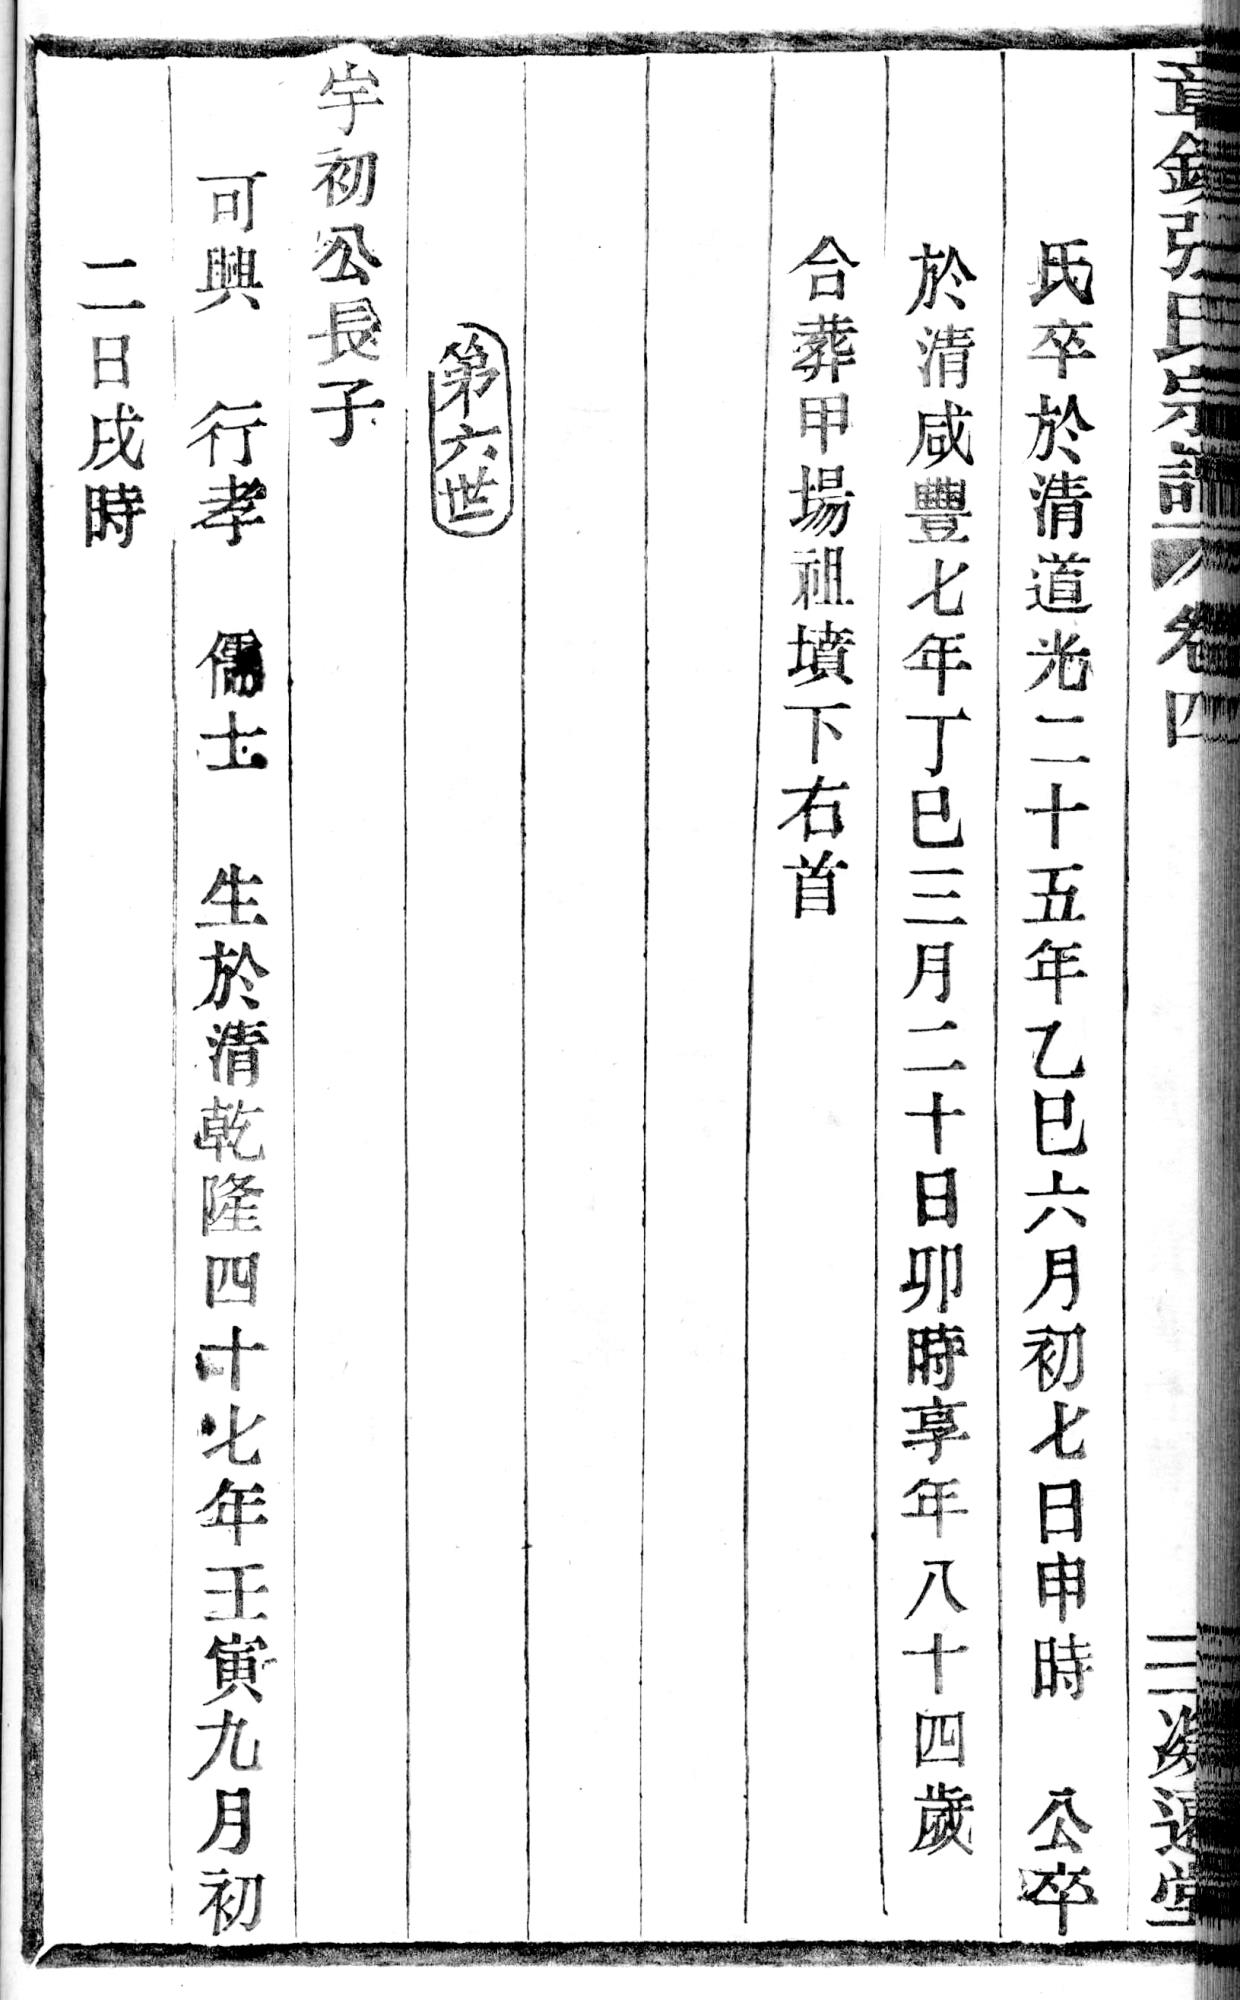 張氏宗譜 卷四 三 遠堂
氏卒於清道光二十五年乙巳六月初七日申時 公卒
於清咸豐七年丁巳三月二十日卯時享年八十四歲
合葬甲場祖墳下右首
第六世
初公長子
可興 行孝 儒士 生於清乾隆四十七年壬寅九月初
二日戌時